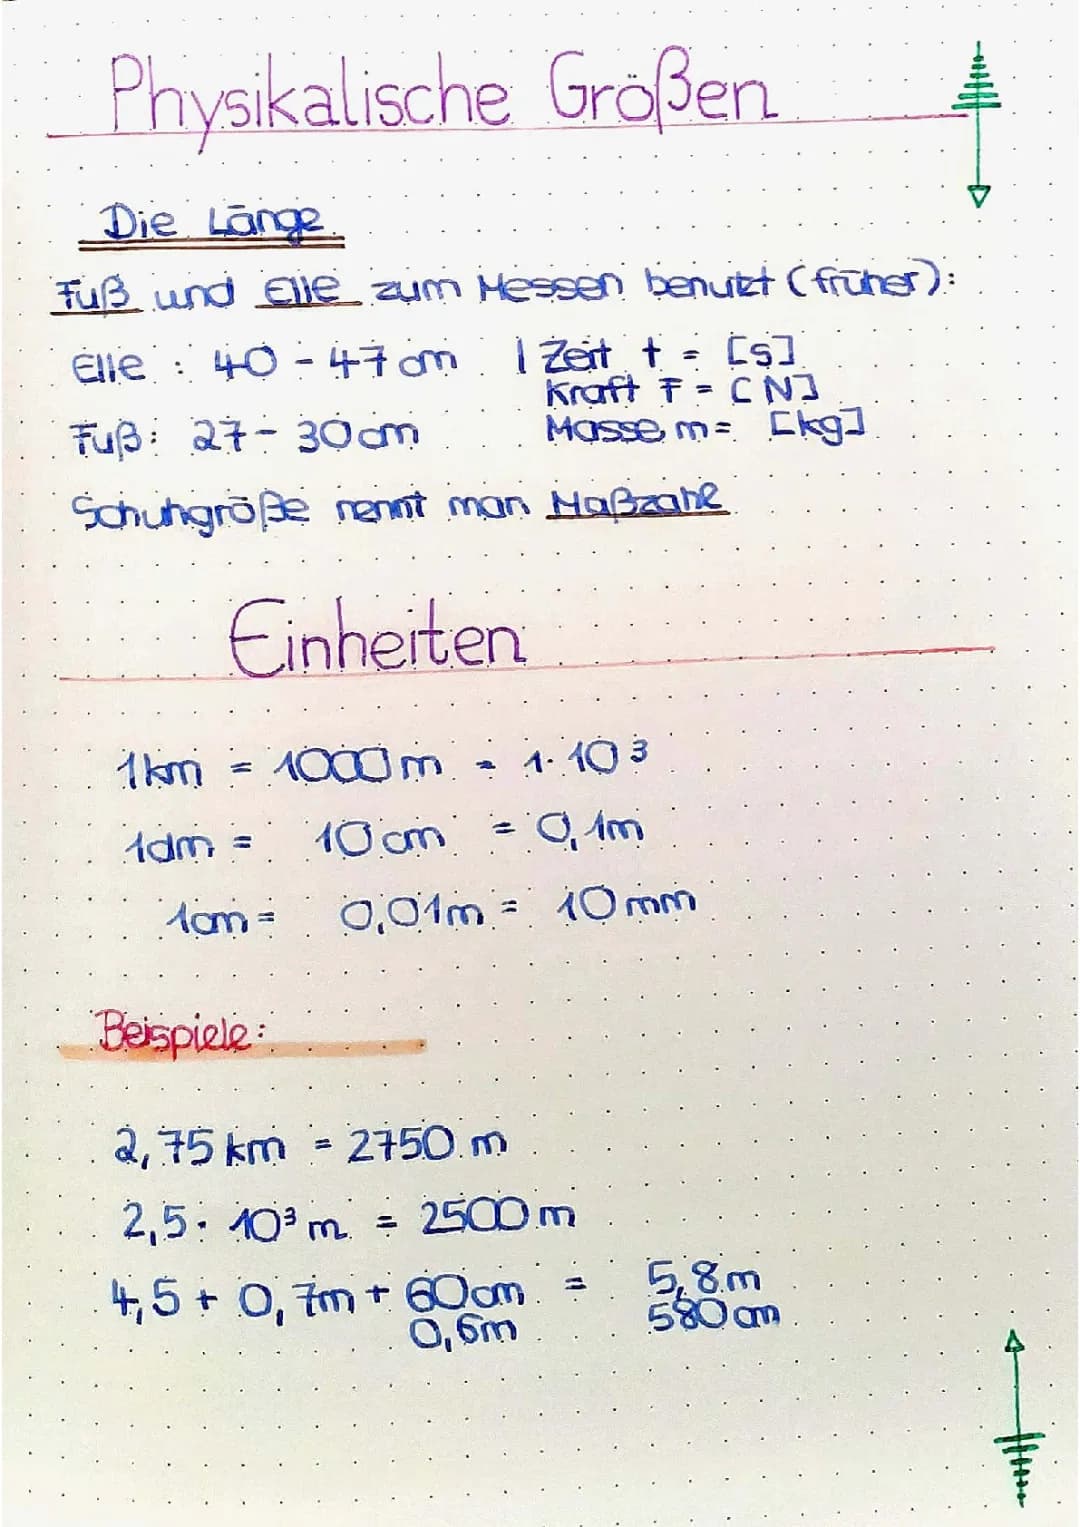 Physikalische Größen
Die Länge
Fuß und Elle zum Messen benutzt (früher):
Elle : 40 - 47 cm | Zeit t = [s]
Kraft F = [N]
Fuß: 27 - 30 cm
Masse m = [kg]
Schuhgröße nennt man Maßzahl
Einheiten
1 km = 1000 m = 1 · 10³
1dm = 10 cm = 0,1m
1cm = 0,01m = 10 mm
Beispiele:
2,75 km = 2750 m
2,5 · 10³ m = 2500 m
4,5 + 0,7m + 60cm = 5,8m
0,6m 580 cm